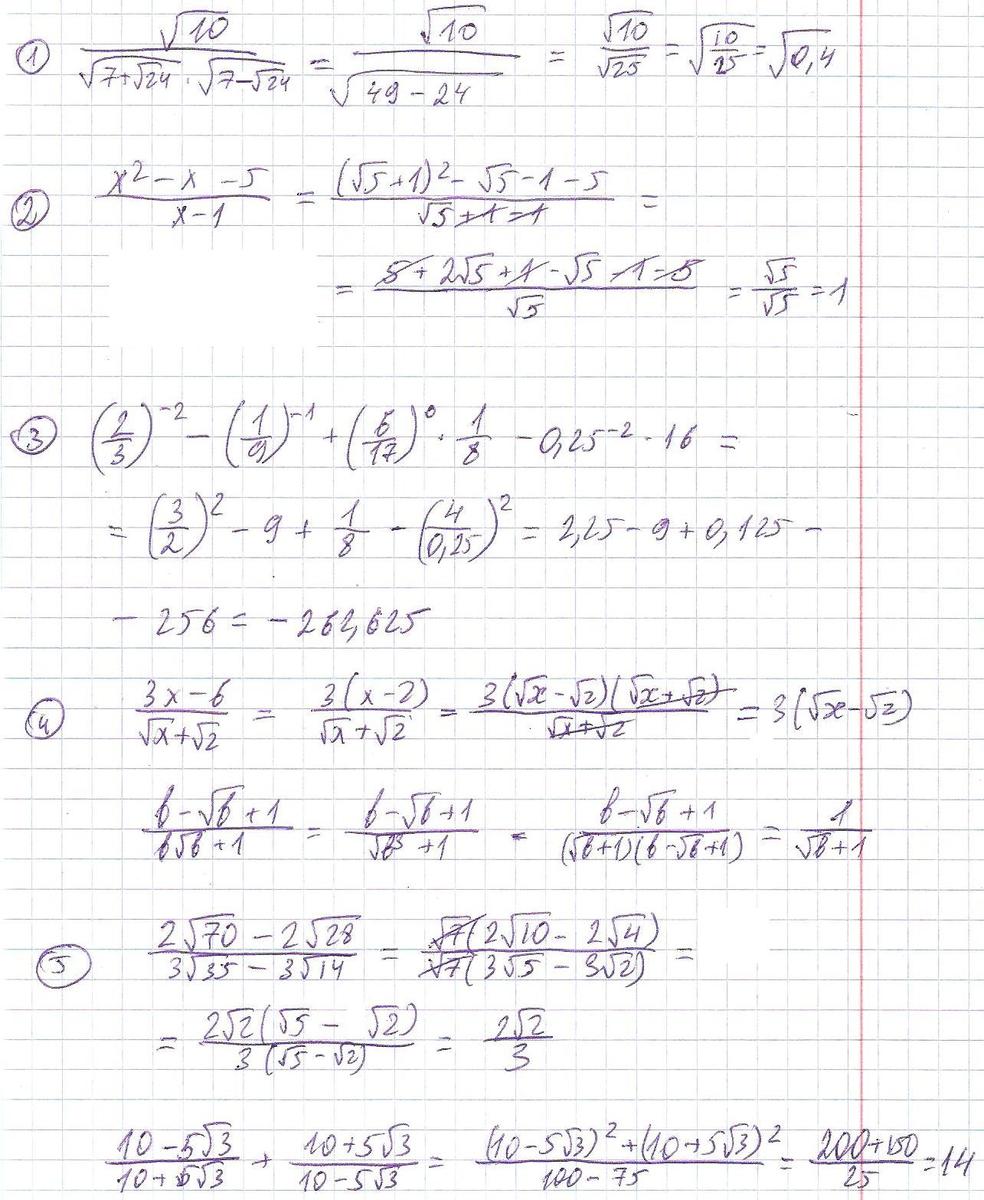 ① √10 / (√(7+√24) · √(7−√24)) = √10 / √(49−24) = √10/√25 = √(10/25) = √0,4
② (x² − x − 5)/(x−1) = ((√5+1)² − √5 − 1 − 5)/(√5+1−1) =
= (5 + 2√5 + 1 − √5 − 1 − 5)/√5 = √5/√5 = 1
③ (2/3)⁻² − (1/9)⁻¹ + (6/17)⁰ · 1/8 − 0,25⁻² · 16 =
= (3/2)² − 9 + 1/8 − (4/0,25)² = 2,25 − 9 + 0,125 −
− 256 = −262,625
④ (3x−6)/(√x+√2) = 3(x−2)/(√x+√2) = 3(√x−√2)(√x+√2)/(√x+√2) = 3(√x−√2)
(b−√b+1)/(b√b+1) = (b−√b+1)/(√b³+1) = (b−√b+1)/((√b+1)(b−√b+1)) = 1/(√b+1)
⑤ (2√70 − 2√28)/(3√35 − 3√14) = √7(2√10 − 2√4)/(√7(3√5 − 3√2)) =
= 2√2(√5 − √2)/(3(√5−√2)) = 2√2/3
(10−5√3)/(10+5√3) + (10+5√3)/(10−5√3) = ((10−5√3)² + (10+5√3)²)/(100−75) = (200+150)/25 = 14